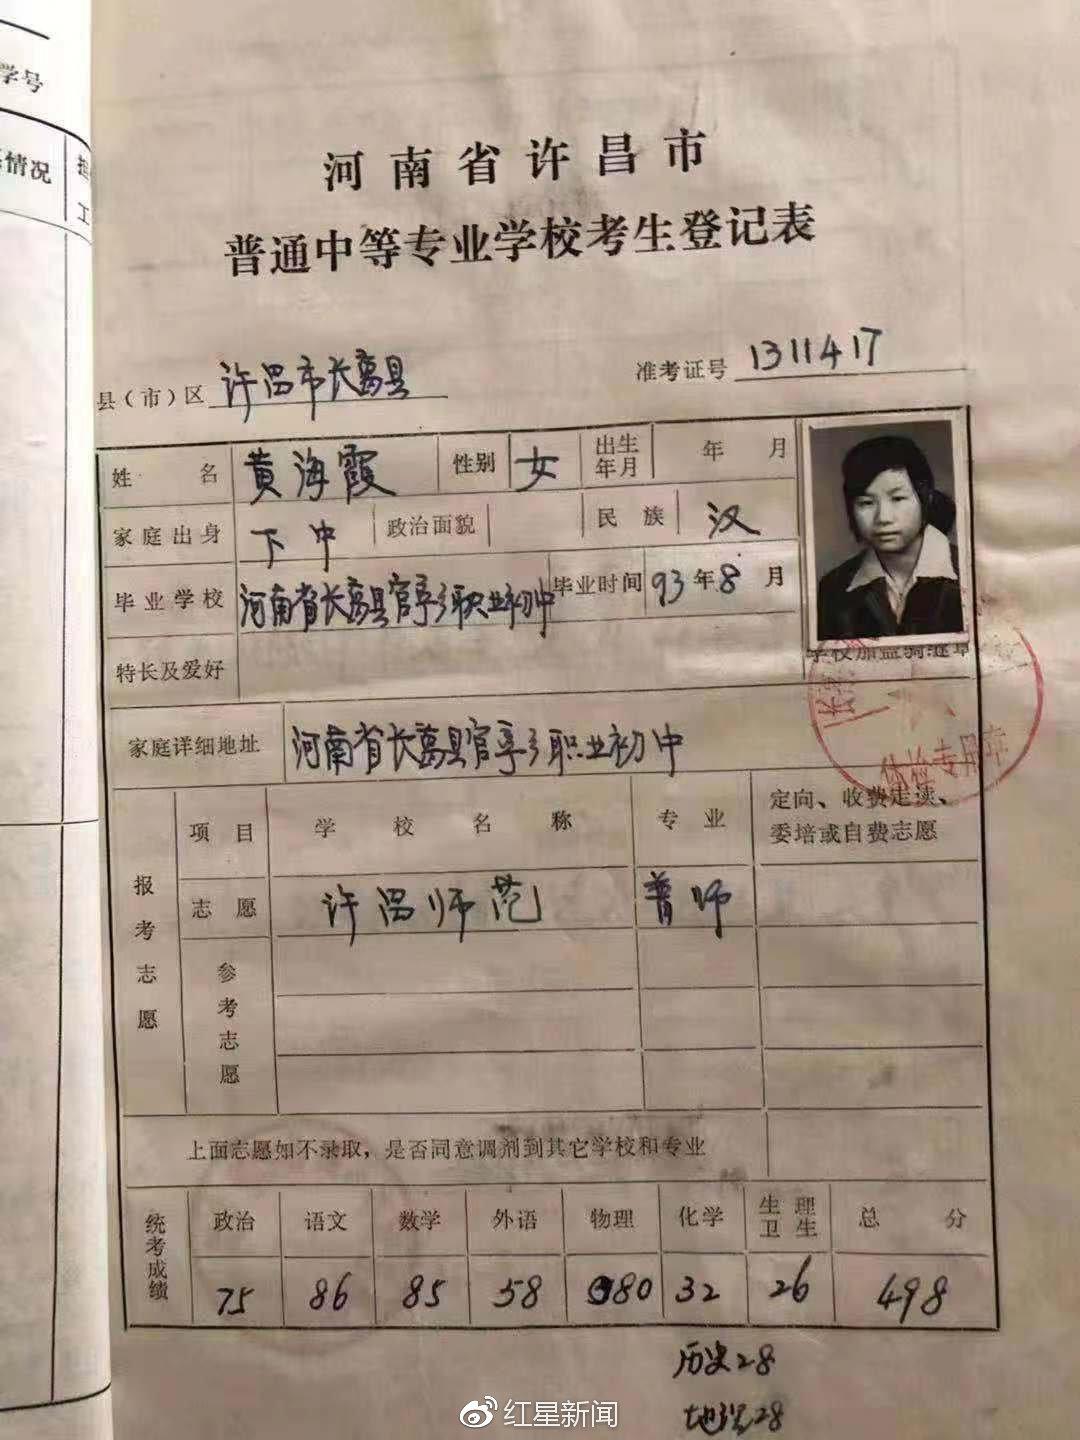 学号
情况
工
河南省许昌市
普通中等专业学校考生登记表
县（市）区 许昌市长葛县 准考证号 1311417
姓名 黄海霞 性别 女 出生年月 年 月
家庭出身 下中 政治面貌 民族 汉
毕业学校 河南省长葛县官亭乡职业初中 毕业时间 93年8月
特长及爱好
学校加盖骑缝章
家庭详细地址 河南省长葛县官亭乡职业初中
体检专用章
报考志愿 项目 学校名称 专业 定向、收费走读、
委培或自费志愿
志愿 许昌师范 普师
参考志愿
上面志愿如不录取，是否同意调剂到其它学校和专业
统考成绩 政治 语文 数学 外语 物理 化学 生理卫生 总分
75 86 85 58 80 32 26 498
历史28
地理28
红星新闻